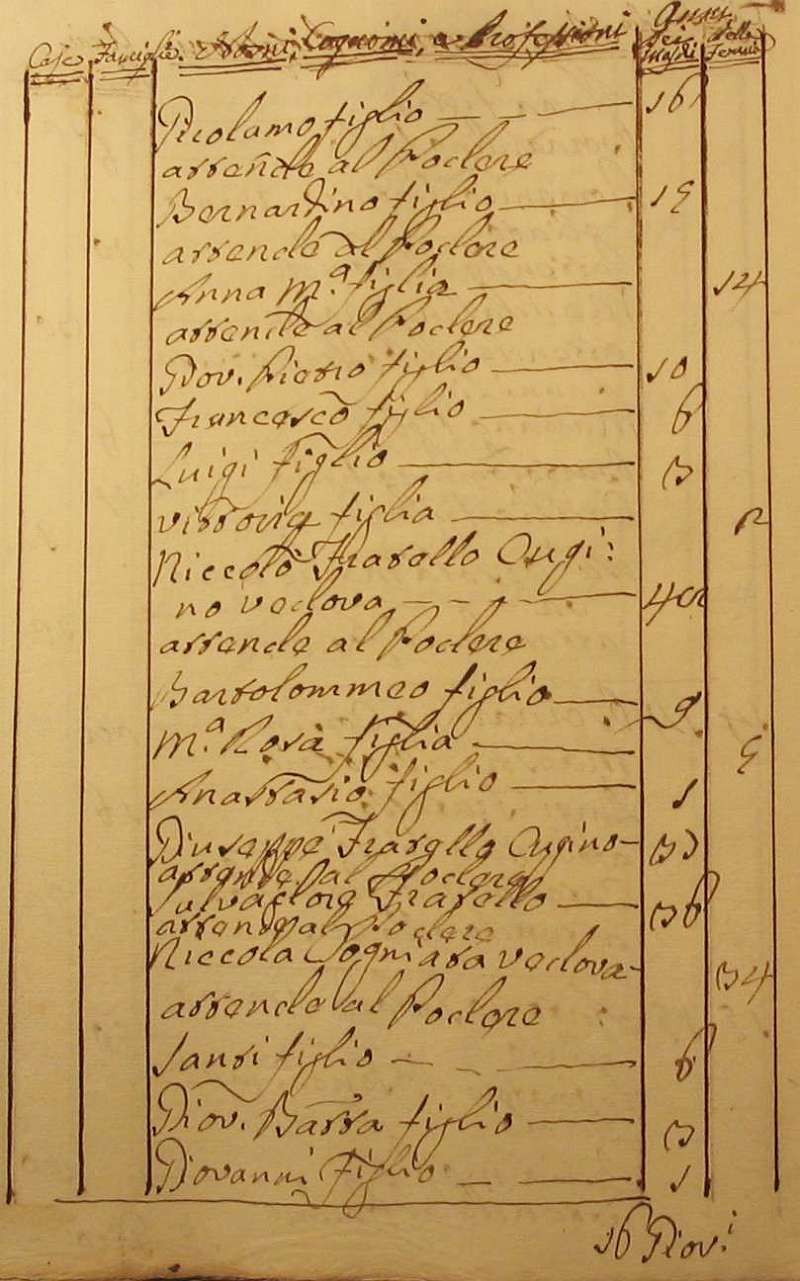 Case Famiglie. Nomi, Cognomi, e Professioni Anni dei Maschi delle Femmine
Girolamo figlio — — — 16
attende al Podere
Bernardino figlio — 15
attende al Podere
Anna M.ª figlia — 14
attende al Podere
Giov. Pietro figlio — 10
Francesco figlio — 6
Luigi figlio — 3
Vittoria figlia — 2
Niccolò Fratello Cugi:
no vedovo — — — 42
attende al Podere
Bartolommeo figlio — 9
M.ª Rosa figlia — 5
Anastasio figlio — 1
Giuseppe Fratello Cugino — 33
attende al Podere
Salvadore Fratello — 36
attende al Podere
Niccola Cogniata vedova — 34
attende al Podere
Santi figlio — — — 6
Giov. Batta figlio — 3
Giovanni figlio — — 1
16 Giov.i